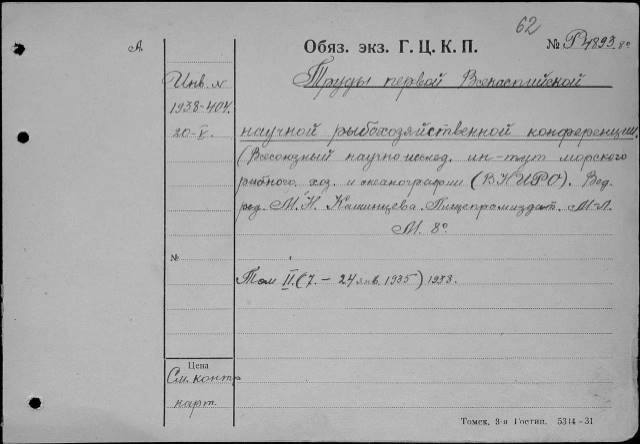 62
А
Обяз. экз. Г. Ц. К. П.
№ Р 4893. 8º
Инв. №
1938-404.
20-V.
Труды первой Всекаспийской
научной рыбохозяйственной конференции.
(Всесоюзный научно исслед. ин-тут морского
рыбного хоз. и океанографии (ВНИРО). Вед.
ред. М. Н. Кашинцева. Пищепромиздат. М-Л.
М. 8º
№
Том II. (7. – 24 янв. 1935) 1938.
Цена
См. контр
карт.
Томск, 3-я Гостип. 5314–31